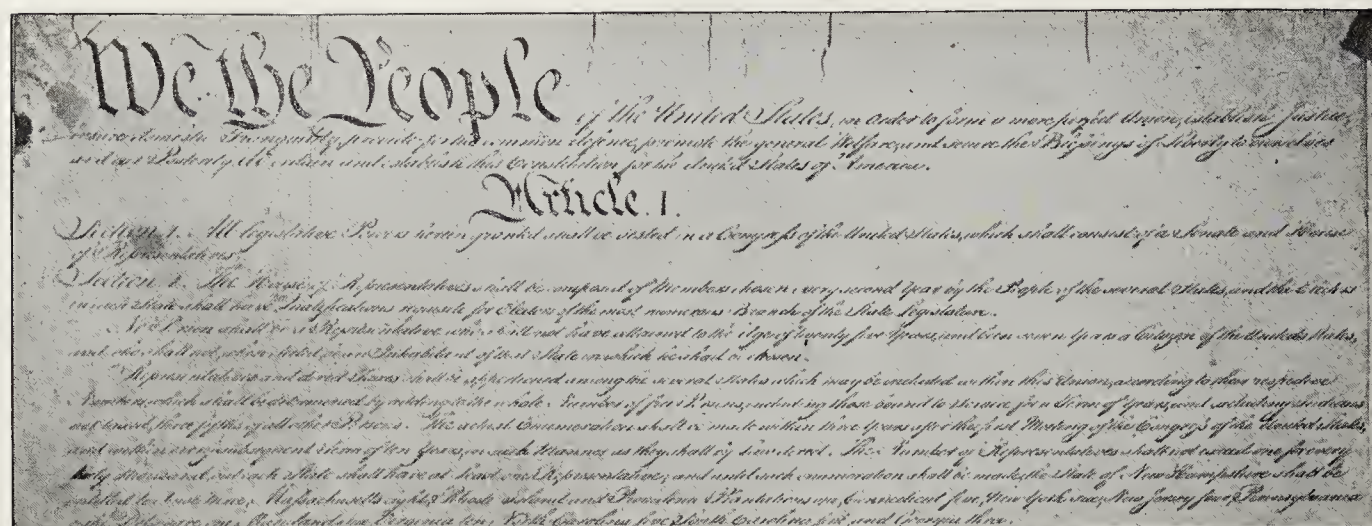 We the People of the United States, in Order to form a more perfect Union, establish Justice,
insure domestic Tranquility, provide for the common defence, promote the general Welfare, and secure the Blessings of Liberty to ourselves
and our Posterity, do ordain and establish this Constitution for the United States of America.
Article. I.
Section. 1. All legislative Powers herein granted shall be vested in a Congress of the United States, which shall consist of a Senate and House
of Representatives.
Section. 2. The House of Representatives shall be composed of Members chosen every second Year by the People of the several States, and the Electors
in each State shall have the Qualifications requisite for Electors of the most numerous Branch of the State Legislature.
No Person shall be a Representative who shall not have attained to the Age of twenty five Years, and been seven Years a Citizen of the United States,
and who shall not, when elected, be an Inhabitant of that State in which he shall be chosen.
Representatives and direct Taxes shall be apportioned among the several States which may be included within this Union, according to their respective
Numbers, which shall be determined by adding to the whole Number of free Persons, including those bound to Service for a Term of Years, and excluding Indians
not taxed, three fifths of all other Persons. The actual Enumeration shall be made within three Years after the first Meeting of the Congress of the United States,
and within every subsequent Term of ten Years, in such Manner as they shall by Law direct. The Number of Representatives shall not exceed one for every
thirty Thousand, but each State shall have at Least one Representative; and until such enumeration shall be made, the State of New Hampshire shall be
entitled to chuse three, Massachusetts eight, Rhode Island and Providence Plantations one, Connecticut five, New York six, New Jersey four, Pennsylvania
eight, Delaware one, Maryland six, Virginia ten, North Carolina five, South Carolina five, and Georgia three.